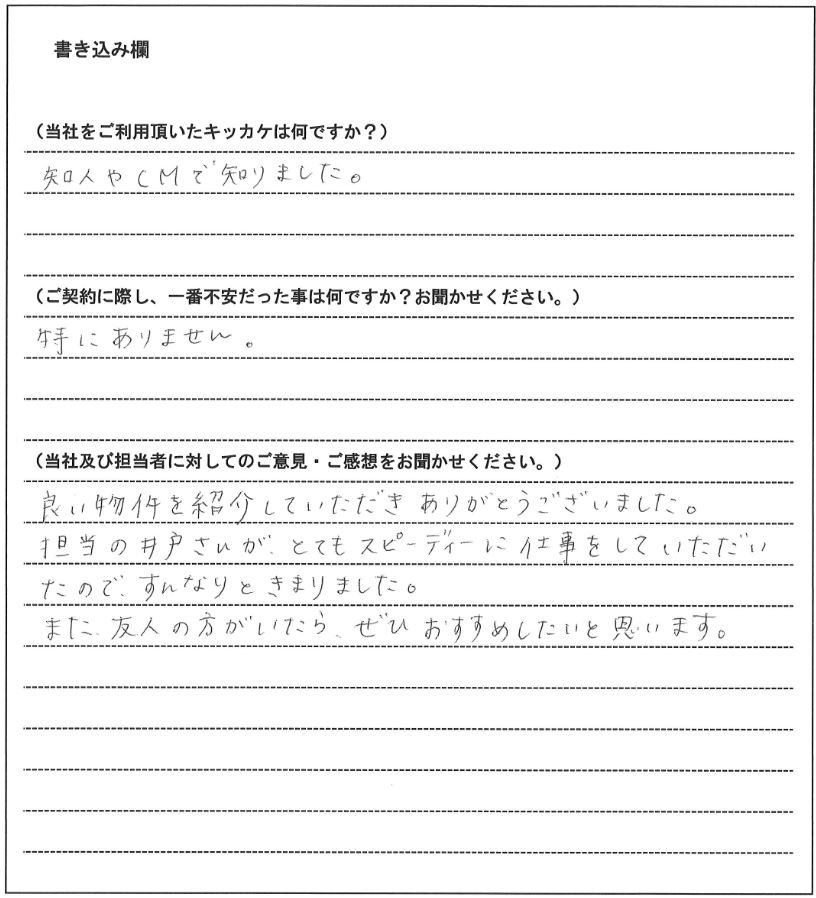 書き込み欄
（当社をご利用頂いたキッカケは何ですか？）
知人やCMで知りました。
（ご契約に際し、一番不安だった事は何ですか？お聞かせください。）
特にありません。
（当社及び担当者に対してのご意見・ご感想をお聞かせください。）
良い物件を紹介していただきありがとうございました。
担当の井戸さんが、とてもスピーディーに仕事をしていただい
たので、すんなりときまりました。
また、友人の方がいたら、ぜひおすすめしたいと思います。